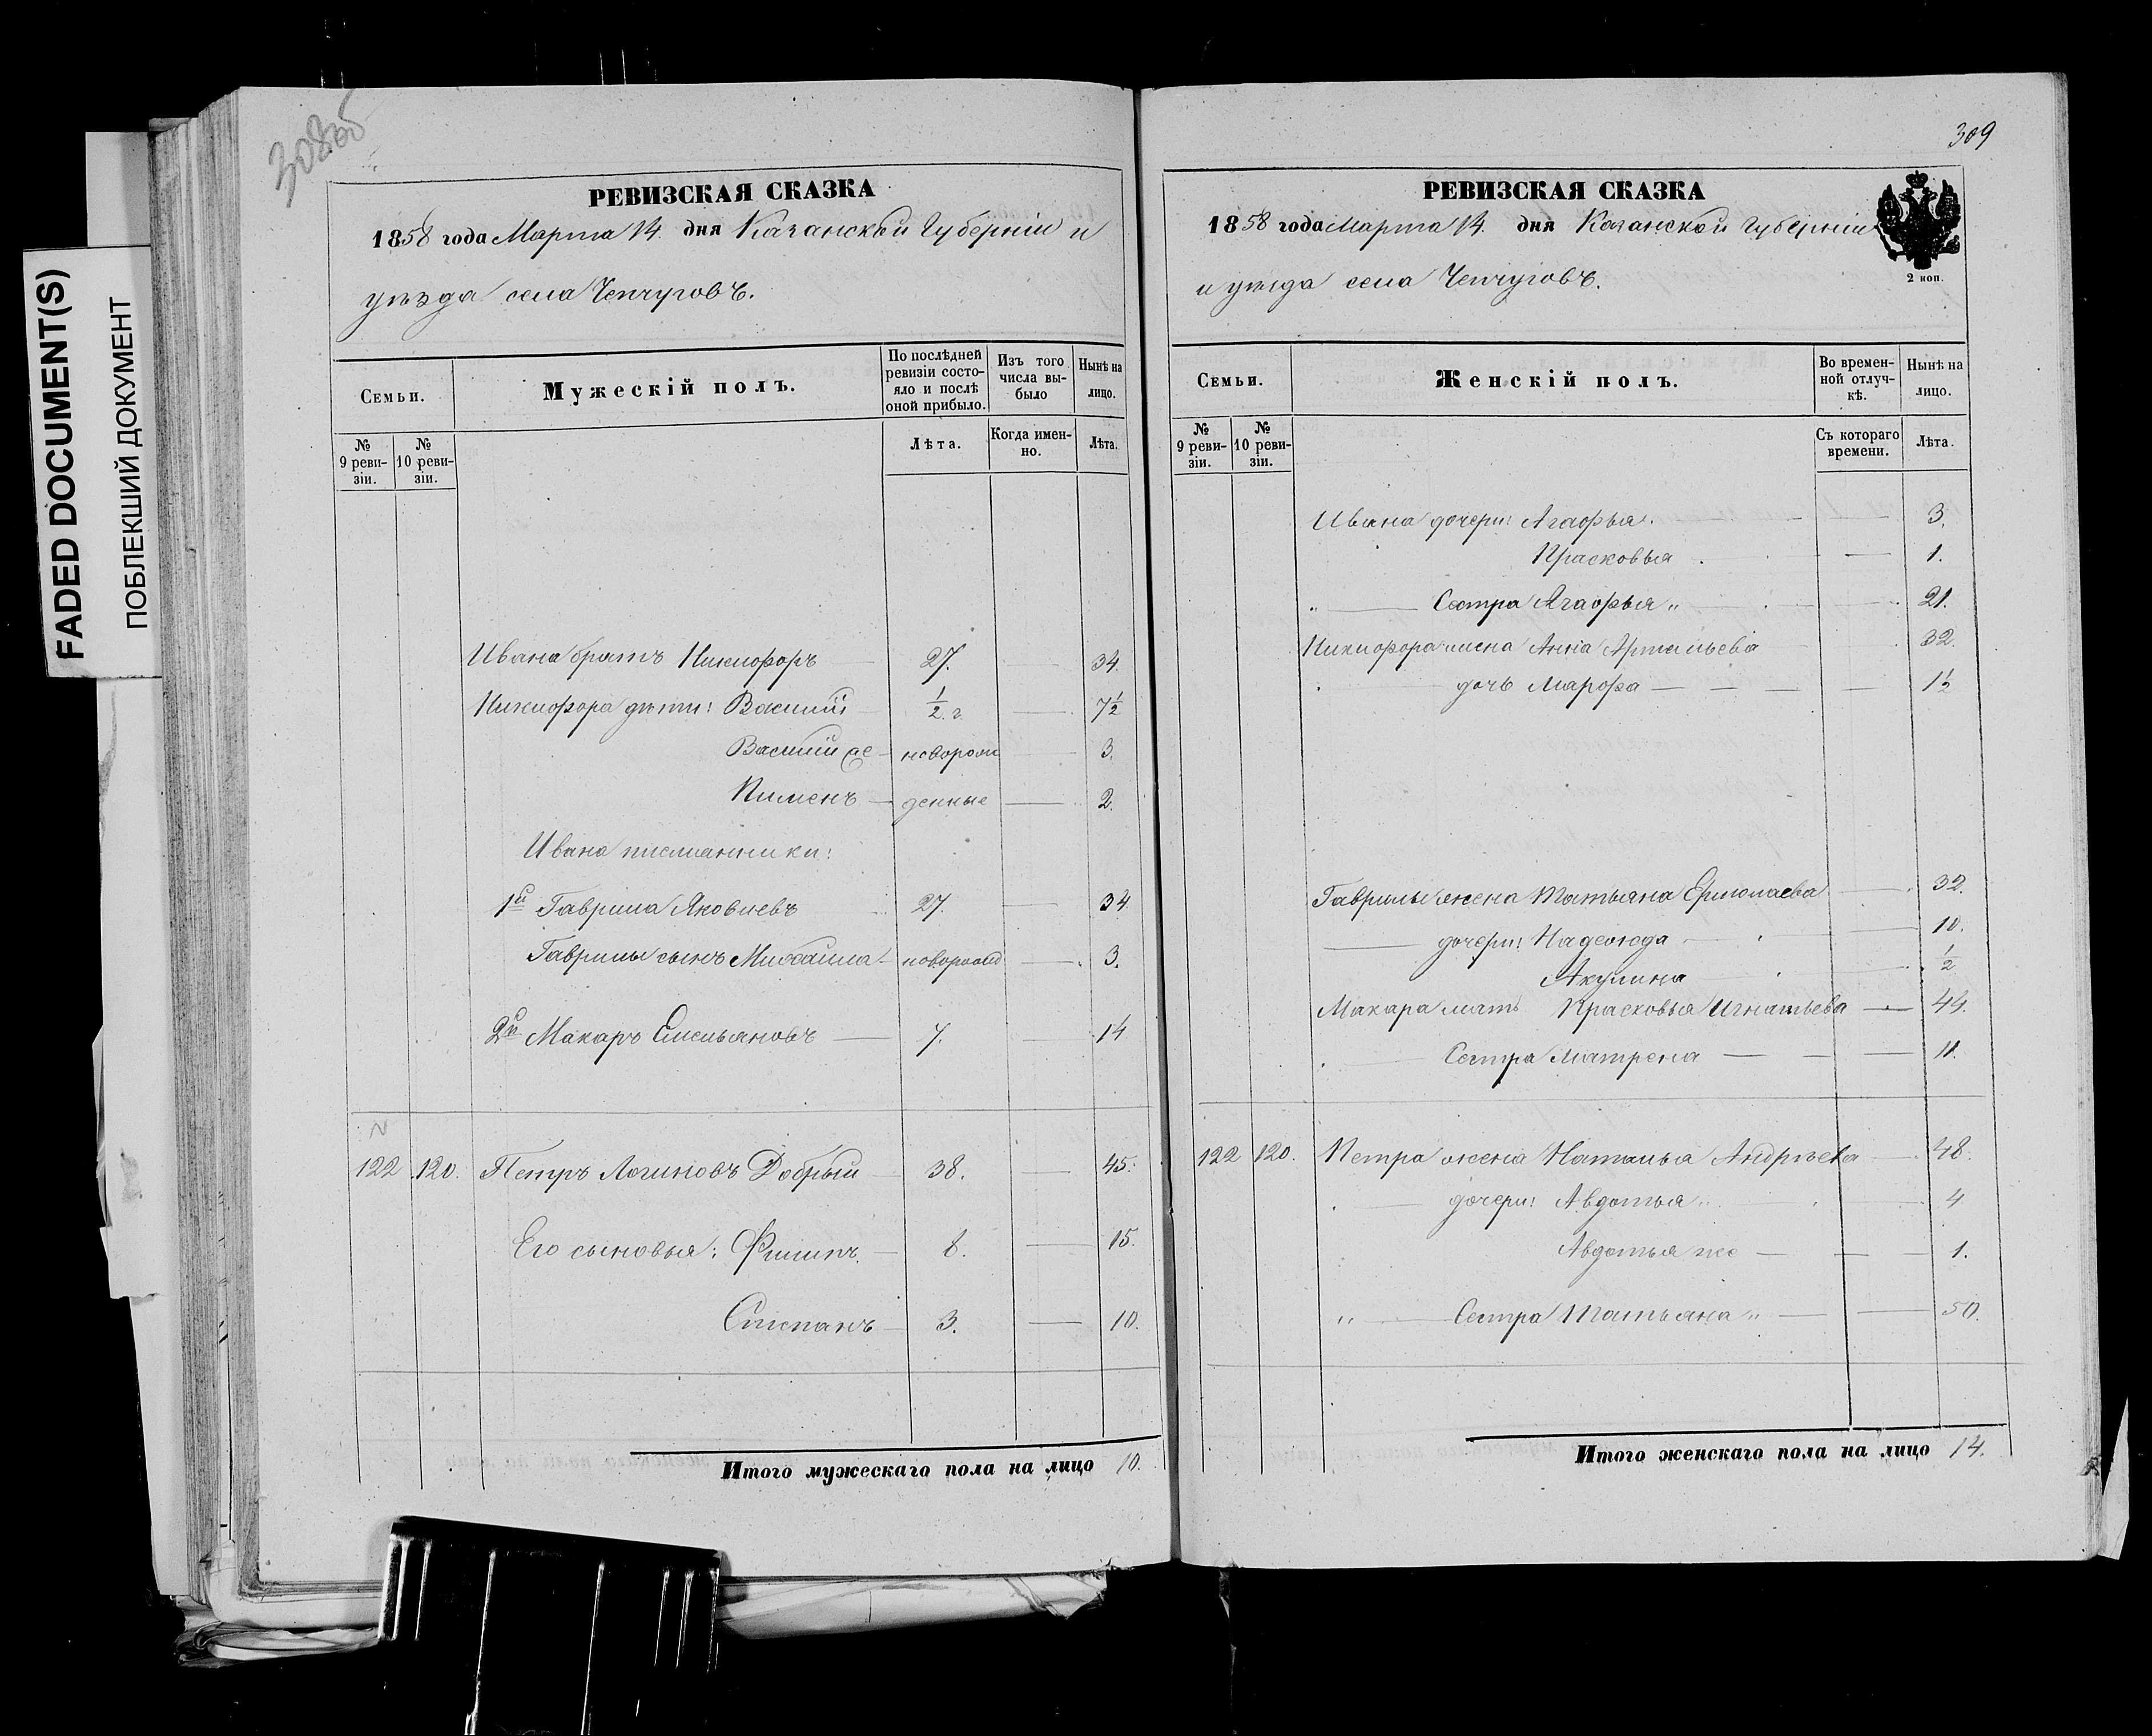 FADED DOCUMENT(S)
ПОБЛЕКШИЙ ДОКУМЕНТ
308об
РЕВИЗСКАЯ СКАЗКА
1858 года Марта 14. дня Казанской Губерніи и
уѣзда села Чепчуговъ.
Семьи.
Мужескій полъ.
По послѣдней ревизіи состояло и послѣ оной прибыло.
Изъ того числа выбыло
Нынѣ на лицо.
№ 9 ревизіи.
№ 10 ревизіи.
Лѣта.
Когда именно.
Лѣта.
Ивана братъ Никифоръ 27. 34.
Никифора дѣти: Василий 1/2 г. 7 1/2
Василий же новорож 3.
Пименъ денные 2.
Ивана племянники:
1й Гаврила Яковлевъ 27. 34
Гаврилы сынъ Михайла новорожд 3.
2й Макаръ Емельяновъ 7. 14
122 120. Петръ Логиновъ Добрый 38. 45.
Его сыновья: Филипъ. 8. 15.
Степанъ 3. 10.
Итого мужескаго пола на лицо 10.
309
РЕВИЗСКАЯ СКАЗКА
1858 года Марта 14. дня Казанской Губерніи
и уѣзда села Чепчуговъ.
2 коп.
Семьи.
Женскій полъ.
Во временной отлучкѣ.
Нынѣ на лицо.
№ 9 ревизіи.
№ 10 ревизіи.
Съ котораго времени.
Лѣта.
Ивана дочери: Агафья. 3.
Прасковья 1.
" Сестра Агафья " 21.
Никифора жена Анна 32.
дочь Марфа 1 1/2
Гаврилы жена Татьяна Ермолаева 32.
дочери: Надежда 10.
Акулина 1/2
Макара мать Прасковья Игнатьева 44.
Сестра Матрена 11.
122 120. Петра жена Наталья Андрѣева 48.
дочери: Авдотья 4
Авдотья же 1.
" Сестра Татьяна " 50.
Итого женскаго пола на лицо 14.